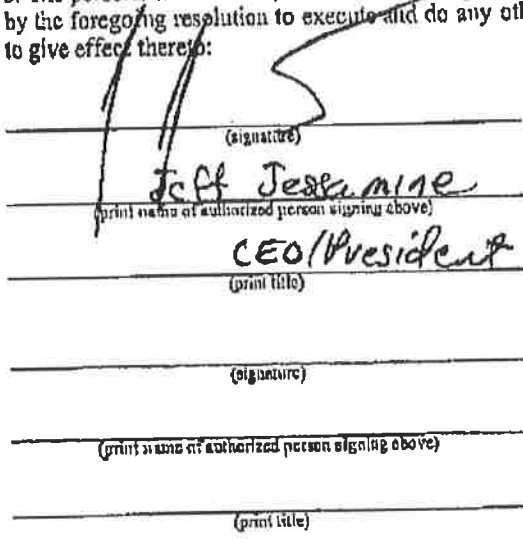 by the foregoing resolution to execute and do any
to give effect thereto:
(signature)
Jeff Jessamine
(print name of authorized person signing above)
CEO/President
(print title)
(signature)
(print name of authorized person signing above)
(print title)